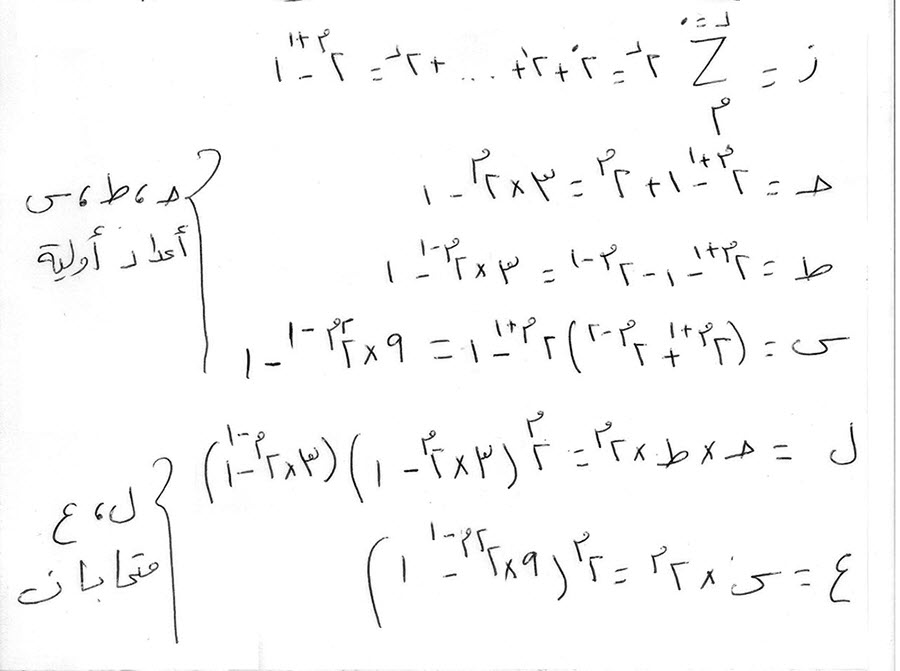 ز = Σ ٢^ر = ٢^٠ + ٢^١ + ... + ٢^ر = ٢^(م+١) - ١
ر=٠
م
ح = ٢^(م+١) - ١ + ٢^م = ٣×٢^م - ١
ط = ٢^(م+١) - ١ - ٢^(م-١) = ٣×٢^(م-١) - ١
س = (٢^(م+١) + ٢^(م-٢)) ٢^(م+١) - ١ = ٩×٢^(٢م-١) - ١
ح، ط، س
أعداد أولية
ل = ح × ط × ٢^م = ٢^م (٣×٢^م - ١) (٣×٢^(م-١) - ١)
ع = س × ٢^م = ٢^م (٩×٢^(٢م-١) - ١)
ل، ع
متحابان